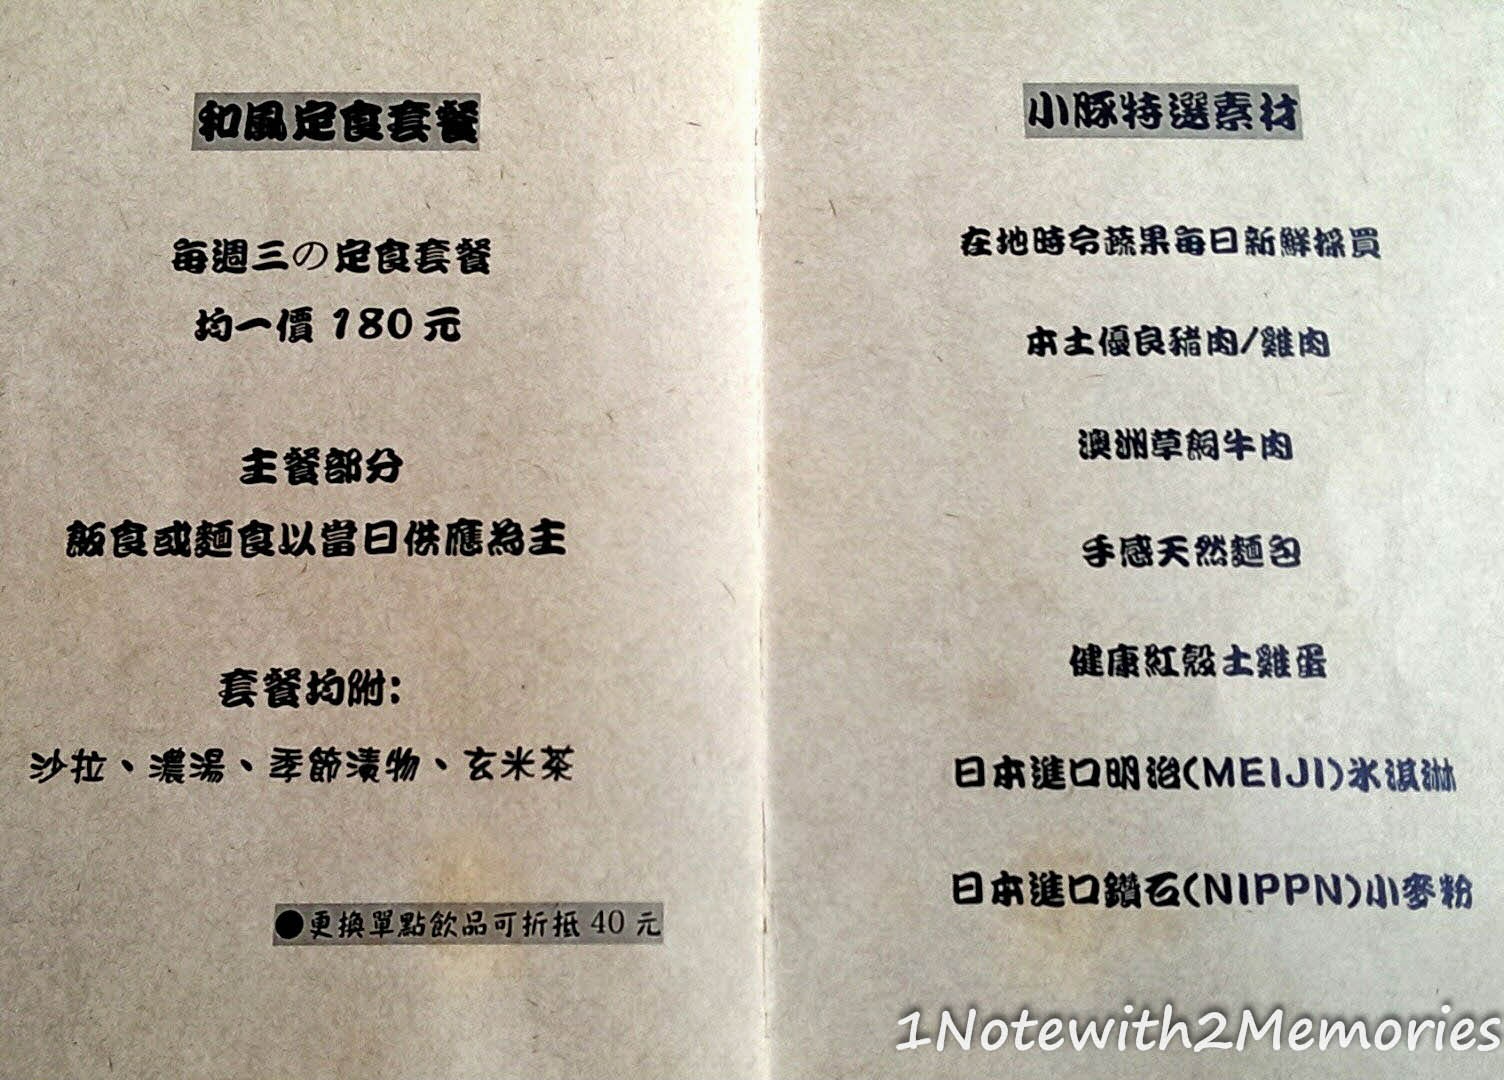 和風定食套餐
每週三の定食套餐
均一價 180 元
主餐部分
飯食或麵食以當日供應為主
套餐均附:
沙拉、濃湯、季節漬物、玄米茶
●更換單點飲品可折抵 40 元
小豚特選素材
在地時令蔬果每日新鮮採買
本土優良豬肉/雞肉
澳洲草飼牛肉
手感天然麵包
健康紅殼土雞蛋
日本進口明治(MEIJI)氷淇淋
日本進口鑽石(NIPPN)小麥粉
1Notewith2Memories